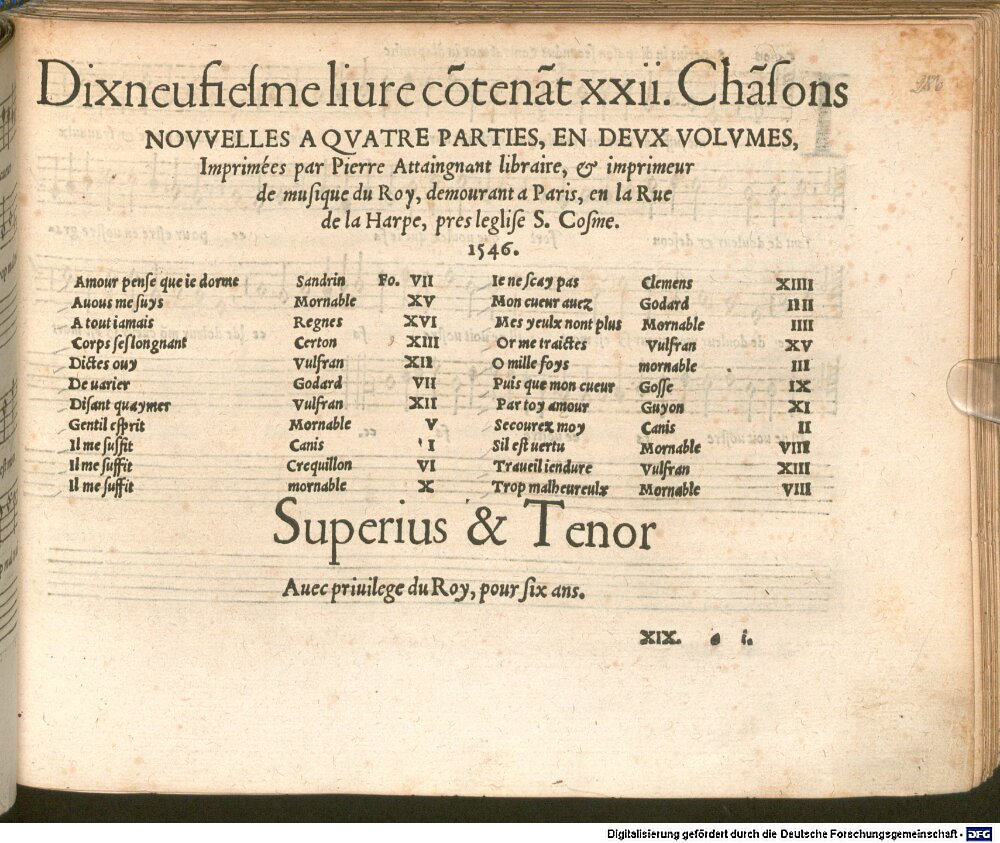 Dixneufiesme liure cõtenãt xxii. Chãsons
NOVVELLES A QVATRE PARTIES, EN DEVX VOLVMES,
Imprimées par Pierre Attaingnant libraire, & imprimeur
de musique du Roy, demourant a Paris, en la Rue
de la Harpe, pres leglise S. Cosme.
1546.
Amour pense que ie dorme Sandrin Fo. VII
Auous me suys Mornable XV
A tout iamais Regnes XVI
Corps seslongnant Certon XIII
Dictes ouy Vulfran XII
De uarier Godard VII
Disant quaymer Vulfran XII
Gentil esprit Mornable V
Il me suffit Canis I
Il me suffit Crequillon VI
Il me suffit mornable X
Ie ne scay pas Clemens XIIII
Mon cueur auez Godard IIII
Mes yeulx nont plus Mornable IIII
Or me traictes Vulfran XV
O mille foys mornable III
Puis que mon cueur Gosse IX
Par toy amour Guyon XI
Secourez moy Canis II
Sil est uertu Mornable VIII
Traueil iendure Vulfran XIII
Trop malheureulx Mornable VIII
Superius & Tenor
Auec priuilege du Roy, pour six ans.
XIX. i.
Digitalisierung gefördert durch die Deutsche Forschungsgemeinschaft - DFG